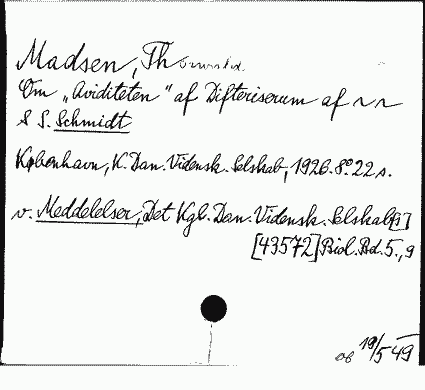 Madsen, Thorvald.
Om „Aviditeten" af Difteriserum af ~ ~
& S. Schmidt
København, K. Dan. Vidensk. Selskab, 1926. 8º. 22 s.
v. Meddelelser, Det Kgl. Dan. Vidensk. Selskab[s]
[43572] Biol. Bd. 5., 9
19/5 49